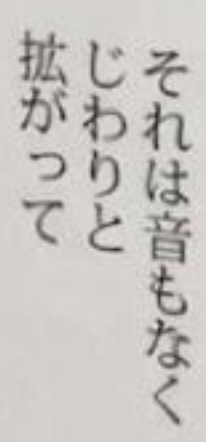 それは音もなく
じわりと
拡がって